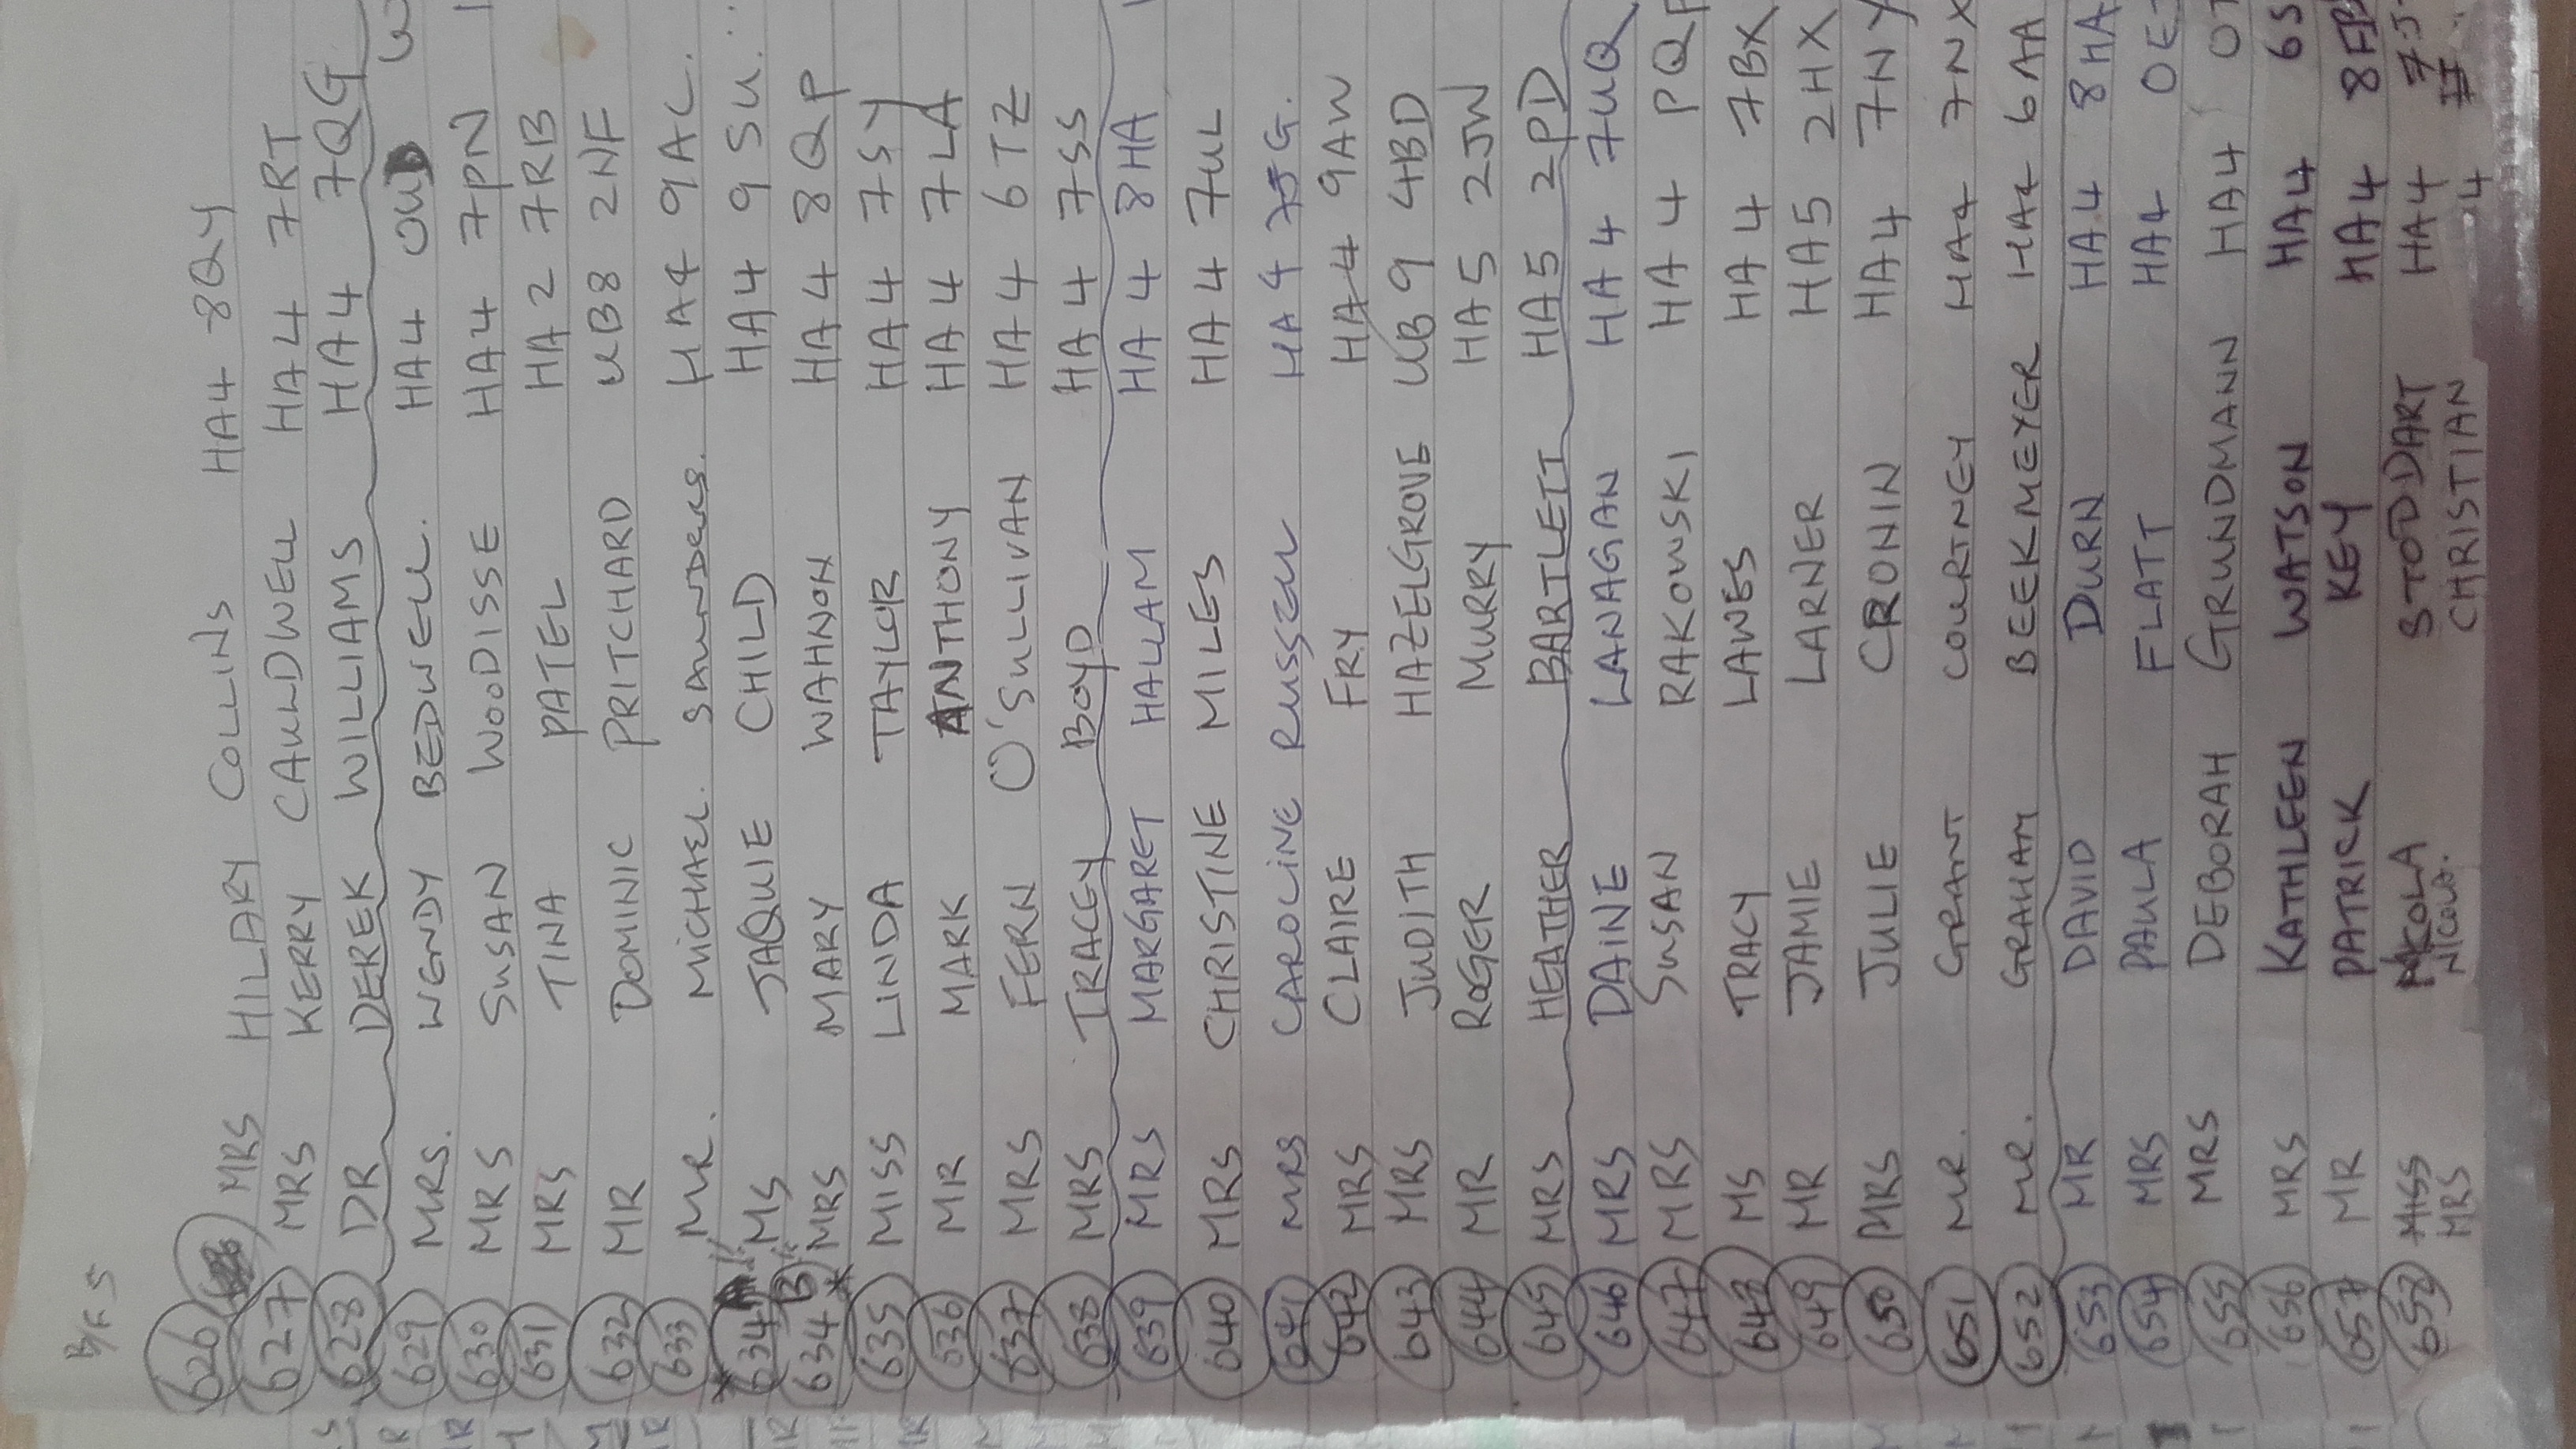 B/F 5
626 MRS HILARY COLLINS HA4 8QY
627 MRS KERRY CAULDWELL HA4 7RT
628 DR DEREK WILLIAMS HA4 7QG
629 MRS. WENDY BEDWELL. HA4 0UD
630 MRS SUSAN WOODISSE HA4 7PN
631 MRS TINA PATEL HA2 7RB
632 MR DOMINIC PRITCHARD UB8 2NF
633 MR. MICHAEL. SAUNDERS. HA4 9AC.
634 "A" MS JAQUIE CHILD HA4 9SU.
634 "B" MRS MARY WAHNON HA4 8QP
635 MISS LINDA TAYLOR HA4 7SY
636 MR MARK ANTHONY HA4 7LA
637 MRS FERN O'SULLIVAN HA4 6TZ
638 MRS TRACEY BOYD HA4 7SS
639 MRS MARGARET HALLAM HA4 8HA
640 MRS CHRISTINE MILES HA4 7UL
641 MRS CAROLINE RUSSELL HA4 7JG.
642 MRS CLAIRE FRY HA4 9AW
643 MRS JUDITH HAZELGROVE UB9 4BD
644 MR ROGER MURRY HA5 2JW
645 MRS HEATHER BARTLETT HA5 2PD
646 MRS DAINE LANAGAN HA4 7UQ
647 MRS SUSAN RAKOWSKI HA4 PQP
648 MS TRACY LAWES HA4 7BX
649 MR JAMIE LARNER HA5 2HX
650 MRS JULIE CRONIN HA4 7NY
651 MR. GRANT COURTNEY HA4 7NX
652 MR. GRAHAM BEEKMEYER HA4 6AA
653 MR DAVID DURN HA4 8HA
654 MRS PAULA FLATT HA4
655 MRS DEBORAH GRUNDMANN HA4
656 MRS KATHLEEN WATSON HA4 6S
657 MR PATRICK KEY HA4
658 MISS NICOLA STODDART HA4
MRS NICOLA. CHRISTIAN 4